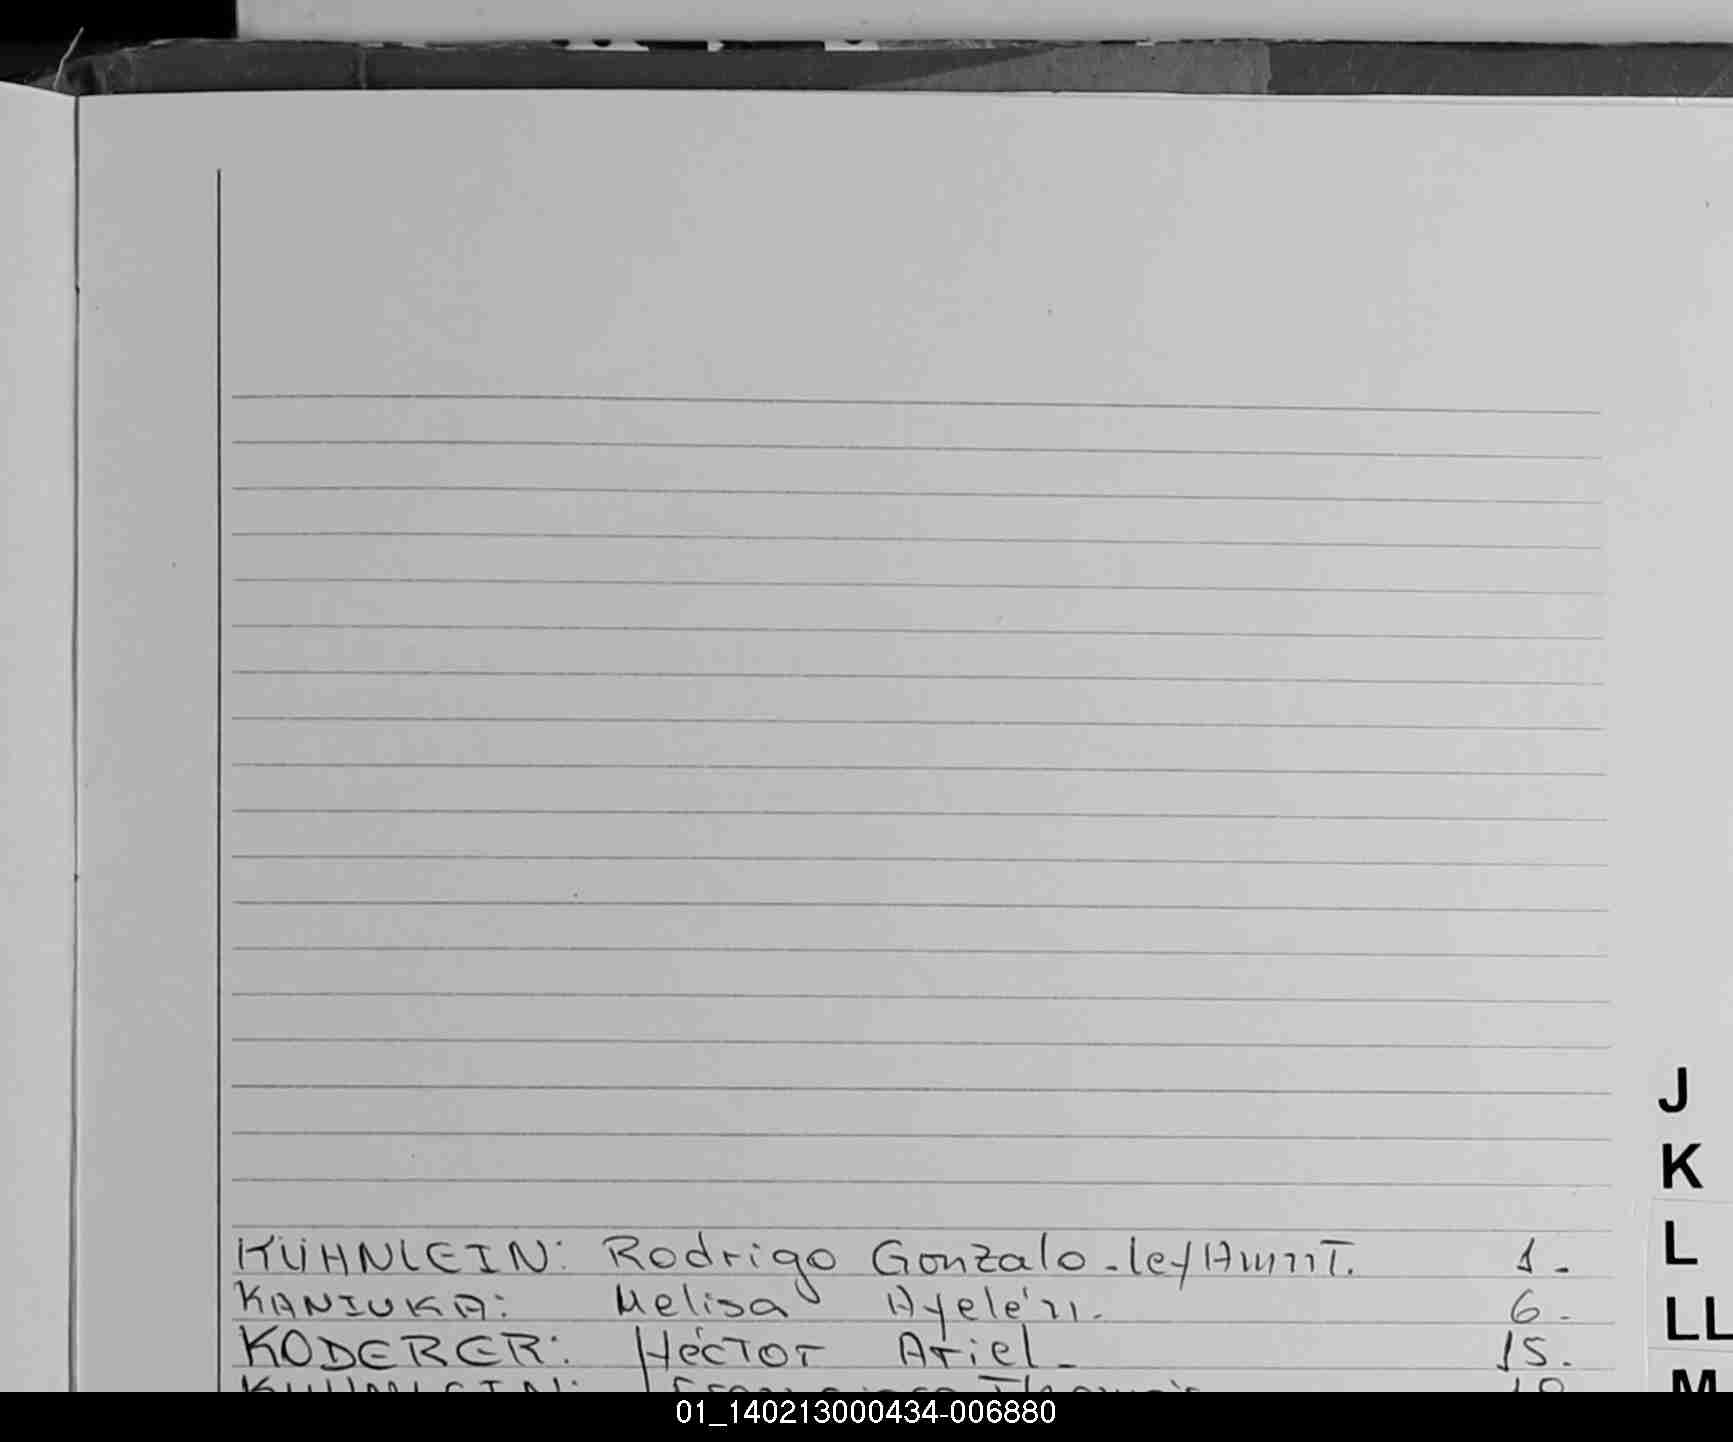 KÜHNLEIN: Rodrigo Gonzalo - 1.-
KANIUKA: Melisa Ayelén.- 6.-
KODERER: Héctor Ariel.- 15.-
J
K
L
LL
M
01_140213000434-006880